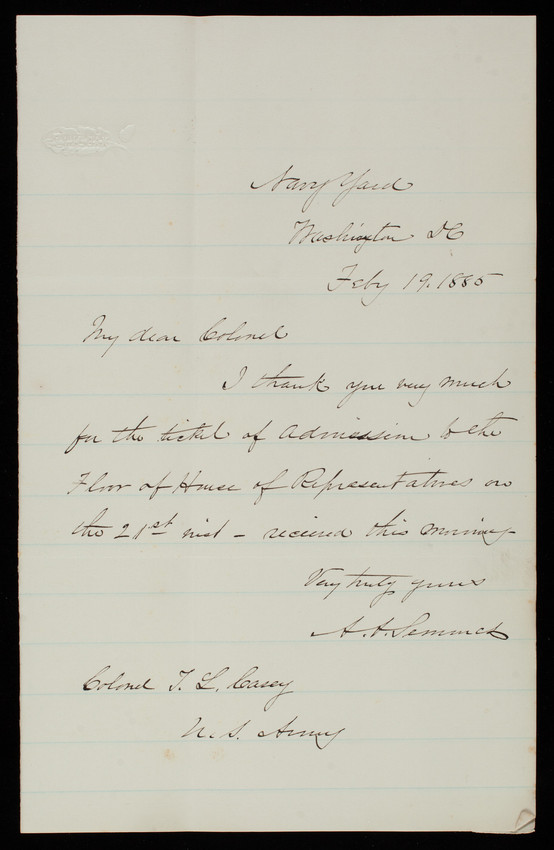 Navy Yard
Washington DC
Feby 19. 1885
My dear Colonel
I thank you very much
for the ticket of admission to the
Floor of House of Representatives on
the 21st inst - recieved this morning
Very truly yours
A. A. Semmes
Colonel T. L. Casey
U. S. Army